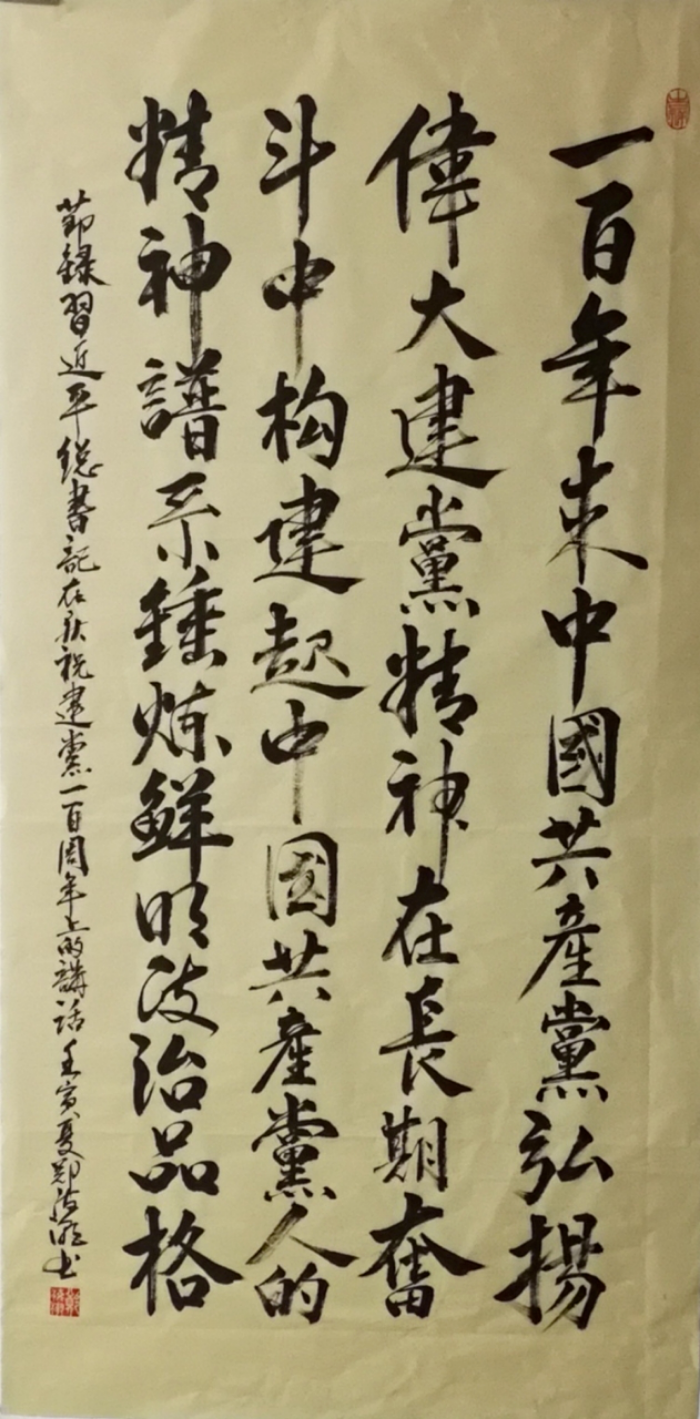 一百年来中國共產黨弘揚
偉大建黨精神在長期奮
斗中构建起中国共產黨人的
精神譜系錘炼鮮明政治品格
節録習近平総書記在庆祝建党一百周年上的講话壬寅夏郑书